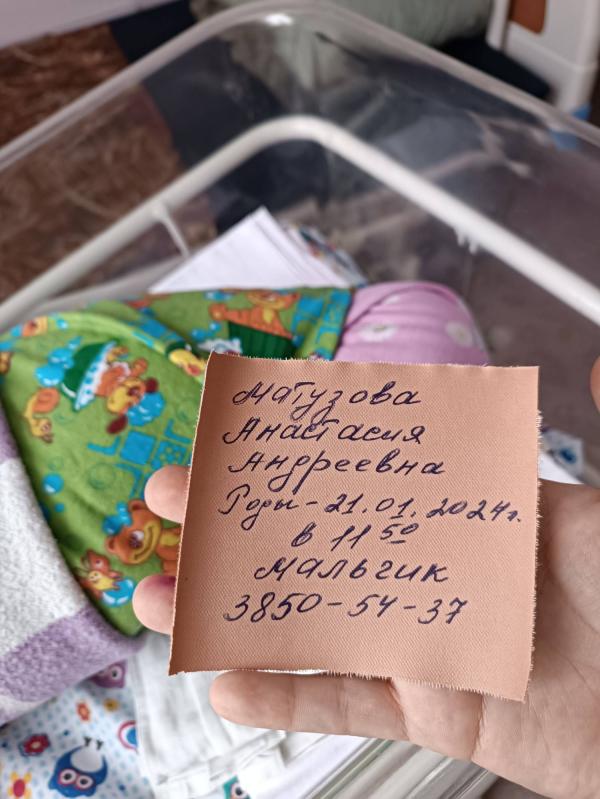 Матузова
Анастасия
Андреевна
Роды - 21.01.2024г.
в 11 50
Мальчик
3850-54-37